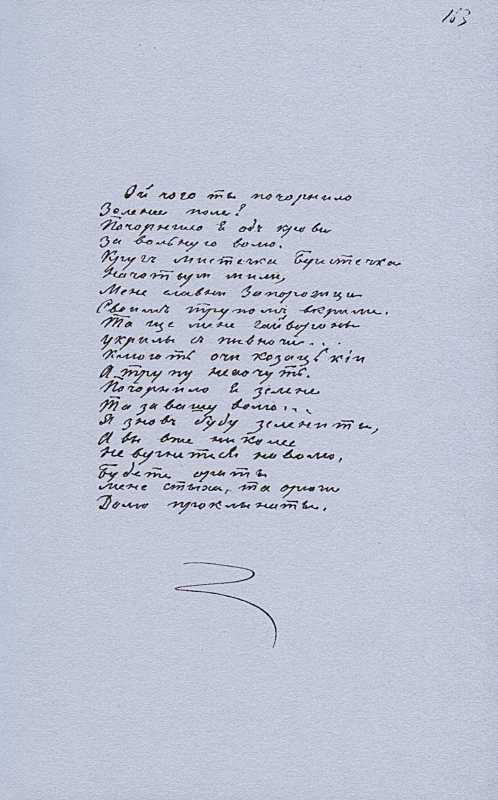 163
Ой чого ты почорнило
Зелене поле?
Почорнило я одъ крови
За вольную волю.
Кругъ мистечка Берестечка
На чотыри мили,
Мене славни Запорожци
Своимъ трупомъ вкрыли.
Та ще мене гайвороны
Укрыли съ пивночи...
Клюють очи козацькіи
А трупу нехочуть.
Почорнило я зелене
Та за вашу волю...
Я зновъ буду зелениты,
А вы вже николы
Не вернетеся на волю,
Будете ораты
Мене стыха, та орючи
Долю проклынаты.